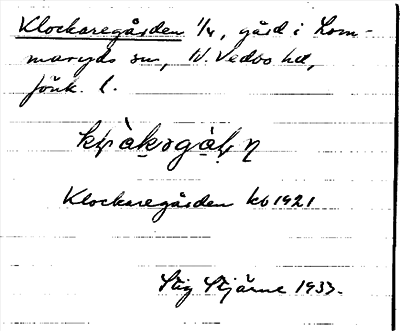 Klockaregården 1/4, gård i Lom-
maryds sn, N. Vedbo hd,
Jönk. l.
Klockaregården kb 1921
Stig Stjärne 1933.